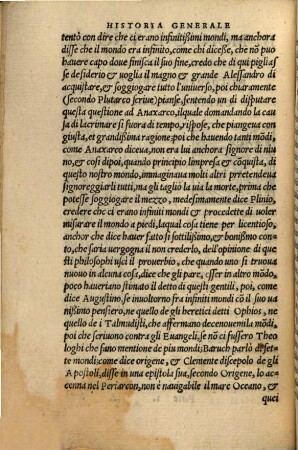 HISTORIA GENERALE
tentò con dire che ci erano infinitißimi mondi, ma anchora
disse che il mondo era infinito, come chi dicesse, che nõ può
hauere capo doue finisca il suo fine, credo che di qui pigliaß
se desiderio & uoglia il magno & grande Alessandro di
acquistare, & soggiogare tutto l'uniuerso, poi chiaramente
(secondo Plutarco scriue) pianse, sentendo un dì disputare
questa questione ad Anaxarco, ilquale domandando la cau
sa di lacrimare si fuora di tempo, rispose, che piangeua con
giusta, & grandißima ragione, poi che hauendo tanti mõdi,
come Anaxarco diceua, non era lui anchora signore di niu
no, & così dipoi, quando principiò l'impresa & cõquista, di
questo nostro mondo, immaginaua molti altri pretendeua
signoreggiarli tutti, ma gli tagliò la uia la morte, prima che
potesse soggiogare il mezzo, medesimamente dice Plinio,
credere che ci erano infiniti mondi & procedette di uoler
misurare il mondo a piedi, laqual cosa tiene per licentioso,
anchor che dice hauer fatto sì sottilißimo, & bonißimo con
to, che saria uergogna il non crederlo, dell'opinione di que
sti philosophi uscì il prouerbio, che quando uno si truoua
nuouo in alcuna cosa, dice che gli pare, esser in altro mõdo,
poco haueriano stimato il detto di questi gentili, poi, come
dice Augustino, se inuoltorno fra infiniti mondi cõ il suo ua
nißimo pensiero, ne quello de gli heretici detti Ophios, ne
quello de i Talmudisti, che affermano decenouemila mõdi,
poi che scriuono contra gli Euangeli, se nõ ci fussero Theo
loghi che fano mentione de piu mondi; Baruch parlò di sete
te mondi; come dice origene, & Clemente discepolo de gli
Apostoli, disse in una epistola sua, secondo Origene, lo ac
cenna nel Periarcon, non è nauigabile il mare Oceano, &
quei